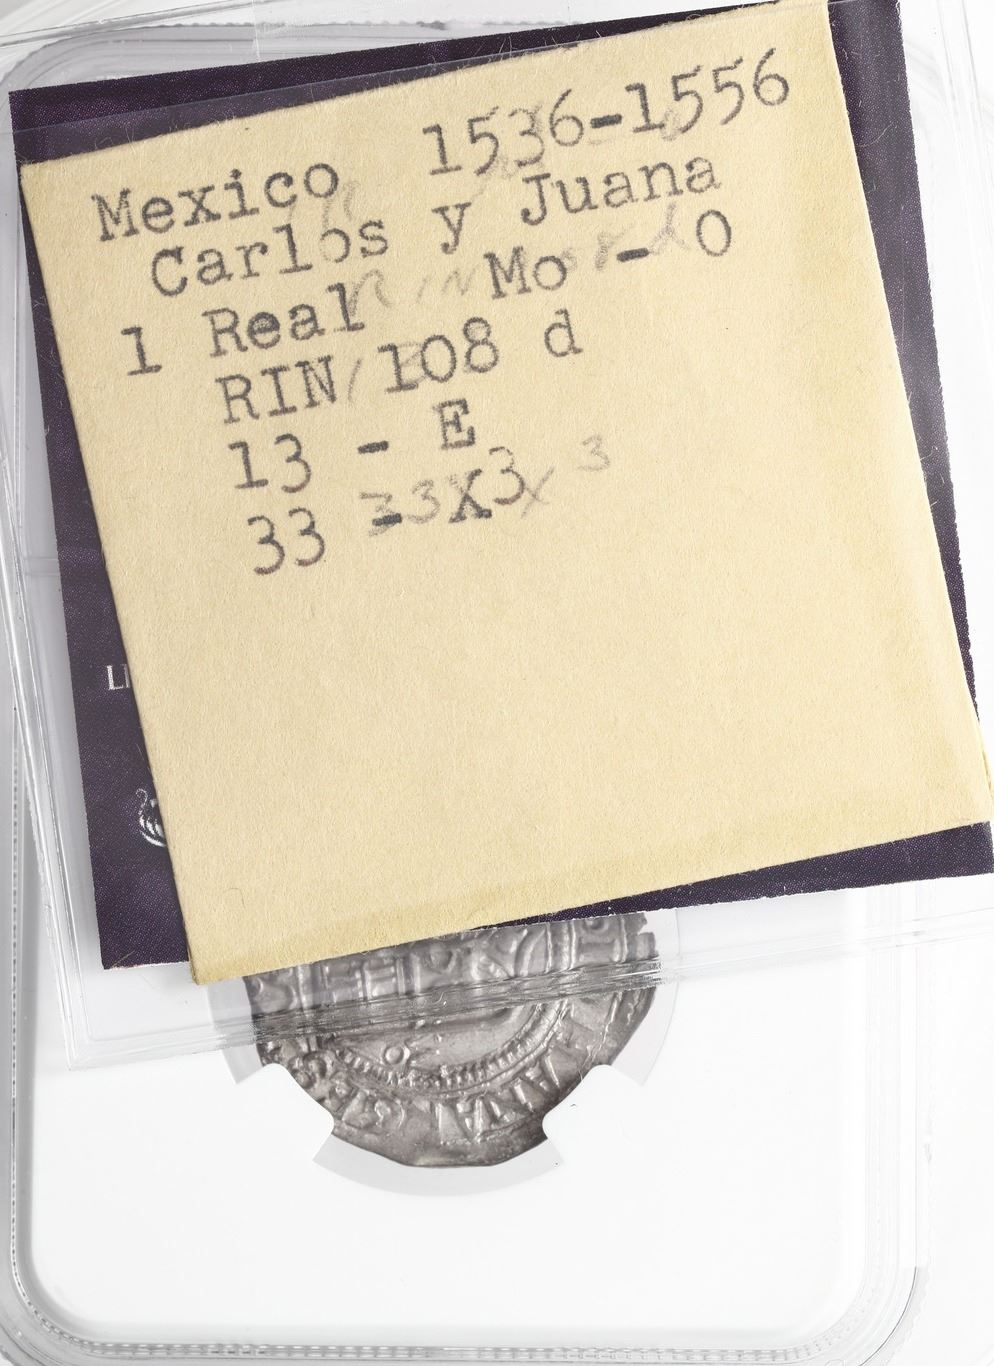 Mexico 1536-1556
Carlos y Juana
1 Real Mo - O
RIN 108 d
13 - E
33 - X3